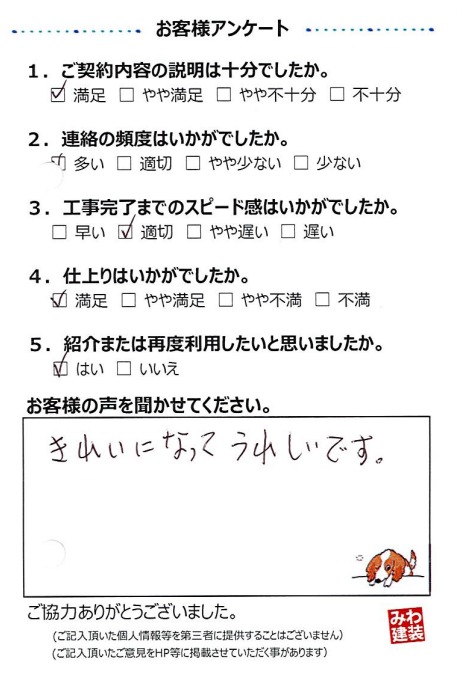 お客様アンケート
1．ご契約内容の説明は十分でしたか。
☑ 満足 □ やや満足 □ やや不十分 □ 不十分
2．連絡の頻度はいかがでしたか。
☑ 多い □ 適切 □ やや少ない □ 少ない
3．工事完了までのスピード感はいかがでしたか。
□ 早い ☑ 適切 □ やや遅い □ 遅い
4．仕上りはいかがでしたか。
☑ 満足 □ やや満足 □ やや不満 □ 不満
5．紹介または再度利用したいと思いましたか。
☑ はい □ いいえ
お客様の声を聞かせてください。
きれいになってうれしいです。
ご協力ありがとうございました。
（ご記入頂いた個人情報等を第三者に提供することはございません）
（ご記入頂いたご意見をHP等に掲載させていただく事があります）
みわ
建装